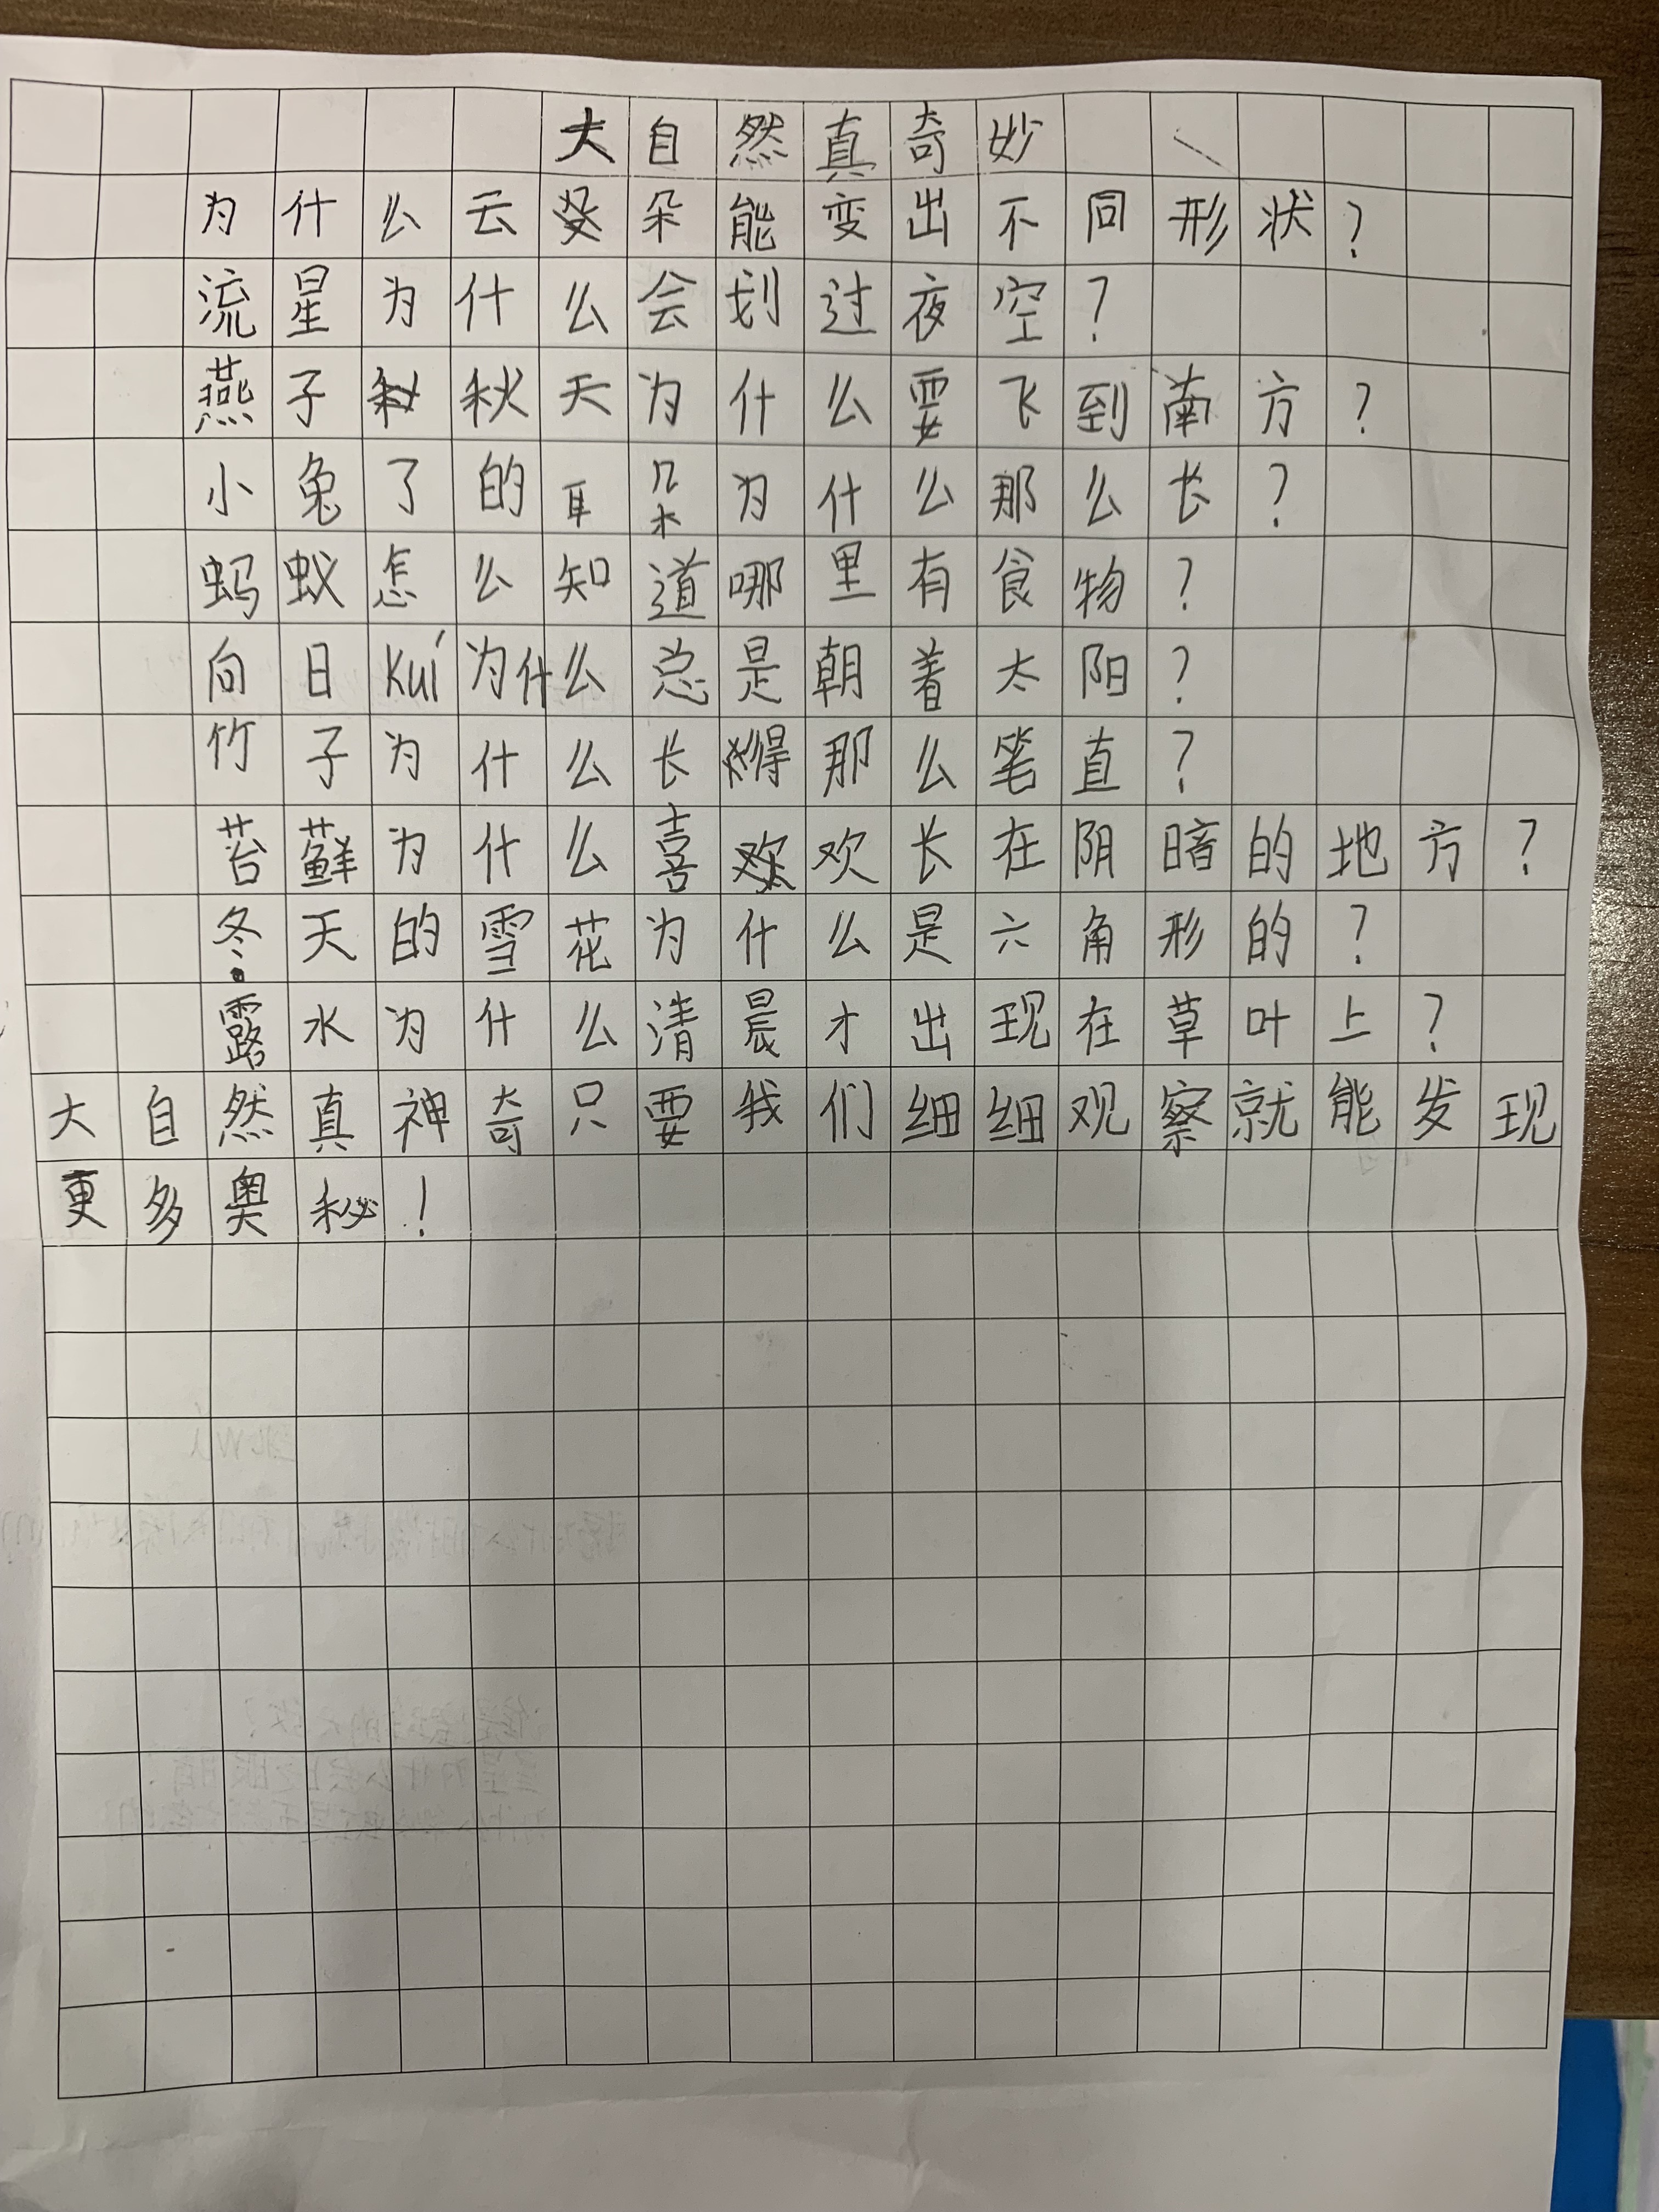 大自然真奇妙
为什么云朵能变出不同形状？
流星为什么会划过夜空？
燕子秋天为什么要飞到南方？
小兔了的耳朵为什么那么长？
蚂蚁怎么知道哪里有食物？
向日Kuí为什么总是朝着太阳？
竹子为什么长得那么笔直？
苔藓为什么喜欢长在阴暗的地方？
冬天的雪花为什么是六角形的？
露水为什么清晨才出现在草叶上？
大自然真神奇只要我们细细观察就能发现
更多奥秘！